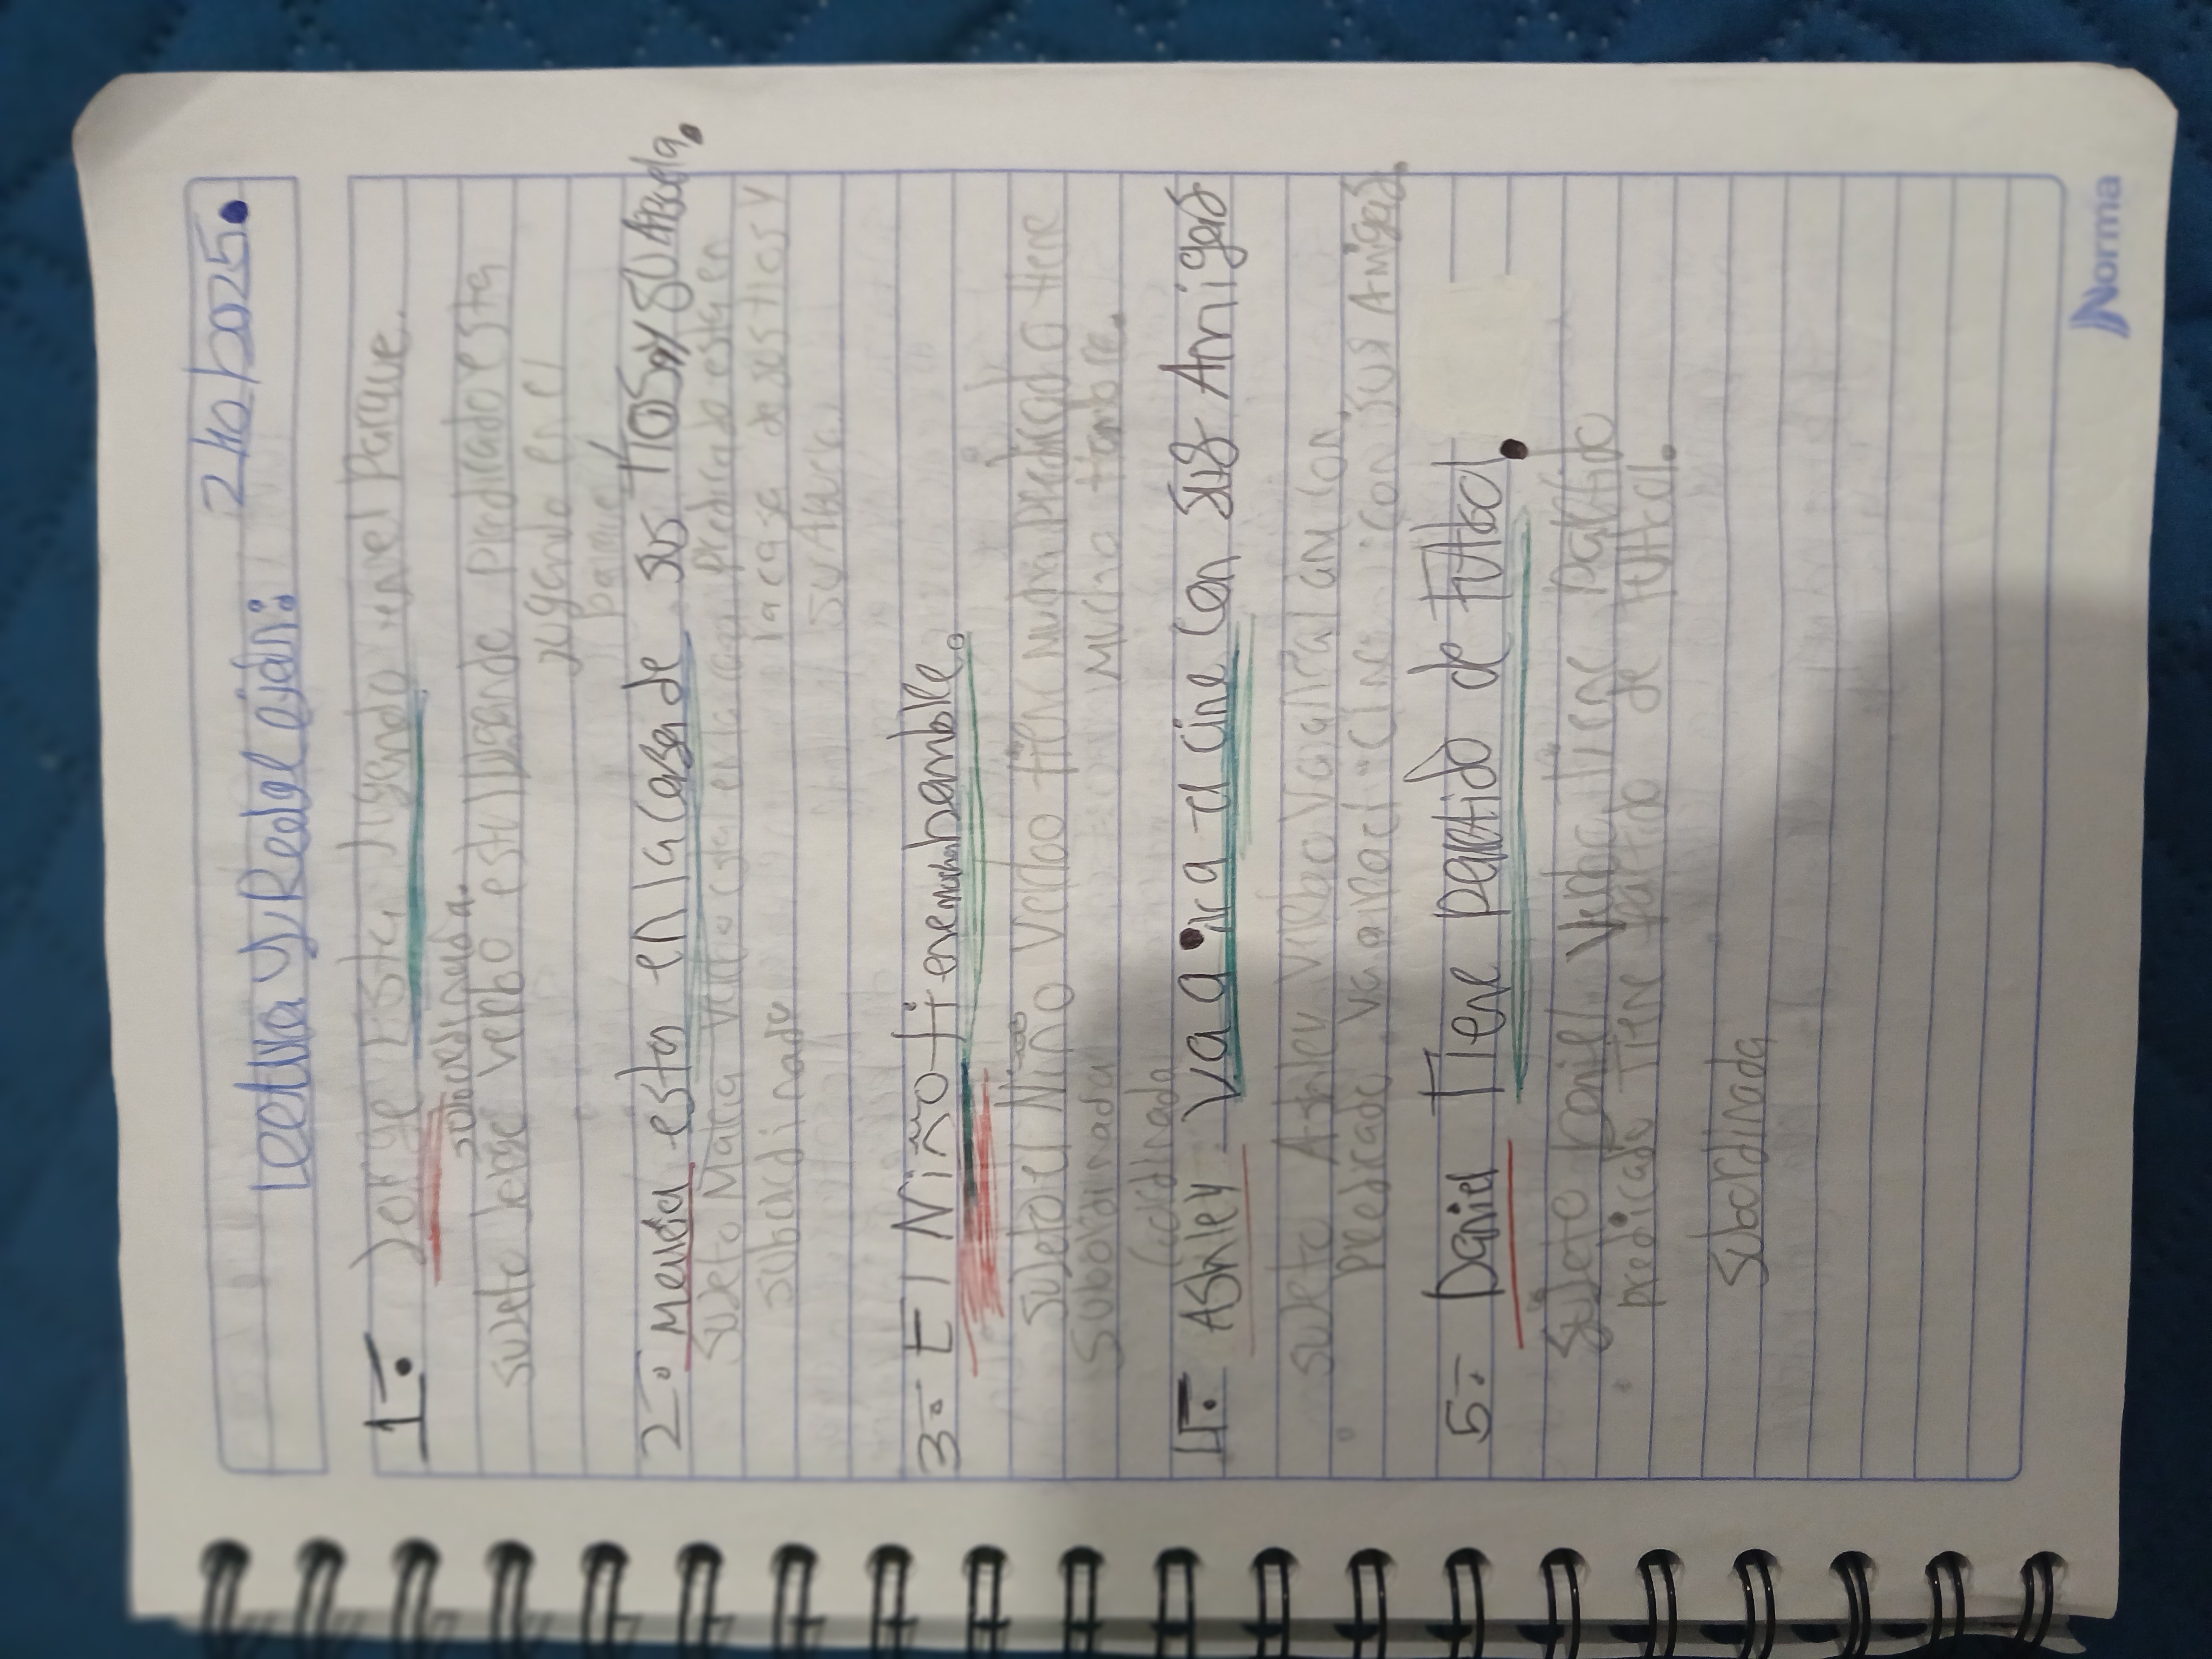 2/10/2025.
Lectura y Redacción:
1.- Jorge Está Jugando en el Parque.
subordinada.
sujeto Jorge Verbo está jugando predicado está
jugando en el
parque
2.- María esta en la casa de sus tios y su Abuela.
Sujeto María Verbo esta en la casa predicado esta en
la casa de sus tios y
subordinado
su Abuela.
3.- El Niño tiene mucha hambre.
Sujeto el Niño Verbo tiene mucha predicado tiene
Subordinada mucha hambre.
Cordinada
4.- Ashley Va a ir a el cine Con sus Amigas
Sujeto Ashley Verbo va a ir al con
predicado va a ir al cine con sus Amigas.
5.- Daniel Tiene partido de futbol.
Sujeto Daniel Verbo Tiene partido
predicado Tiene partido de futbol.
Subordinada
Norma